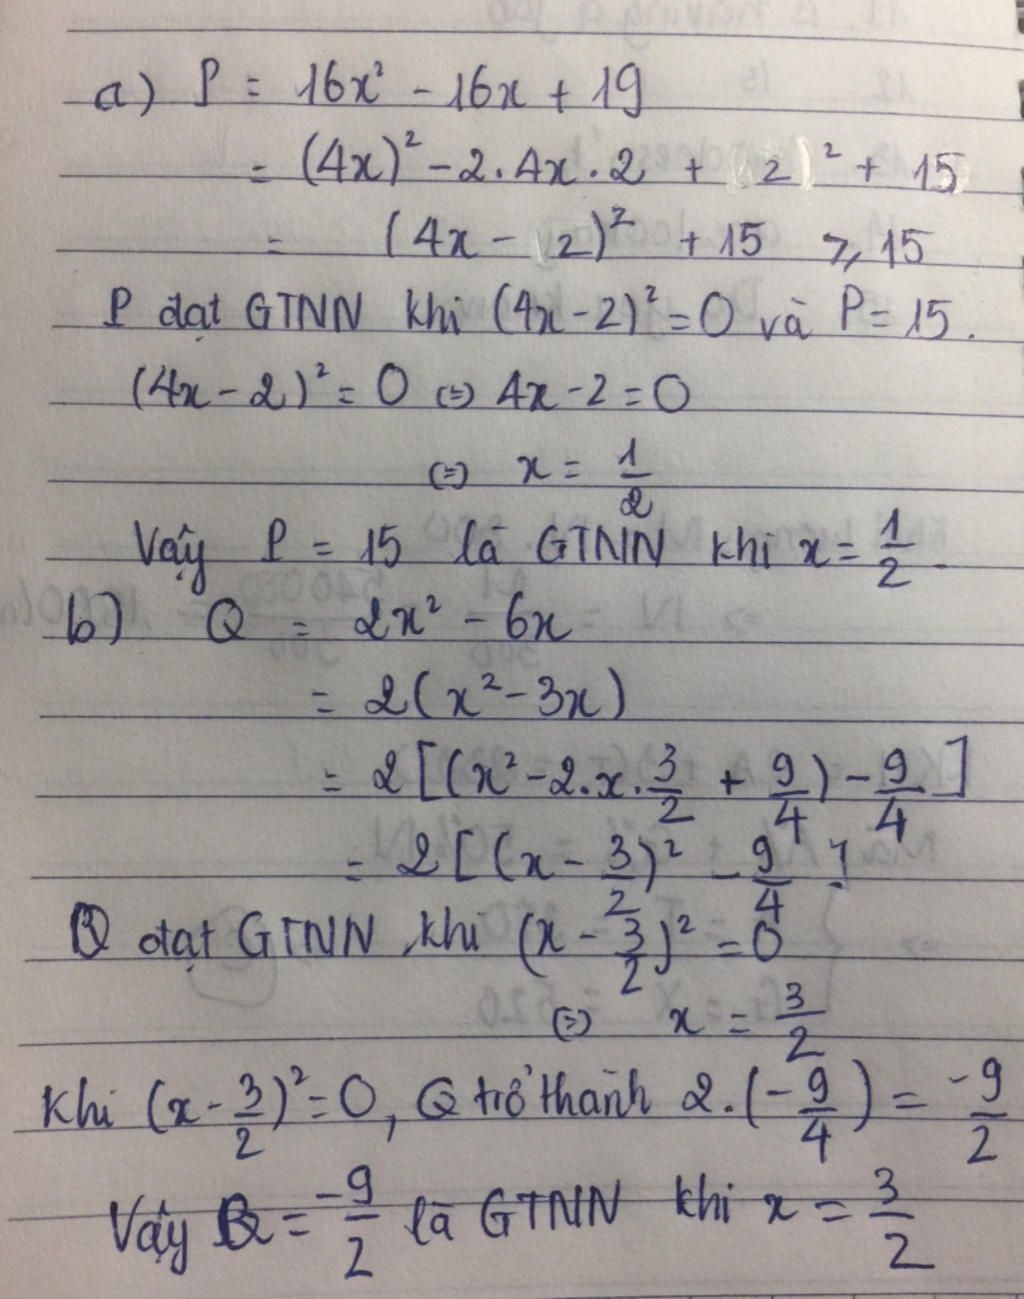 a) P = 16x² - 16x + 19
= (4x)² - 2.4x.2 + (2)² + 15
= (4x - 2)² + 15 ⩾ 15
P đạt GTNN khi (4x-2)² = 0 và P = 15.
(4x - 2)² = 0 (=) 4x - 2 = 0
(=) x = 1/2
Vậy P = 15 là GTNN khi x = 1/2.
b) Q = 2x² - 6x
= 2(x² - 3x)
= 2[(x² - 2.x.3/2 + 9/4) - 9/4]
= 2[(x - 3/2)² - 9/4]
Q đạt GTNN khi (x - 3/2)² = 0
(=) x = 3/2
Khi (x - 3/2)² = 0, Q trở thành 2.(-9/4) = -9/2
Vậy Q = -9/2 là GTNN khi x = 3/2